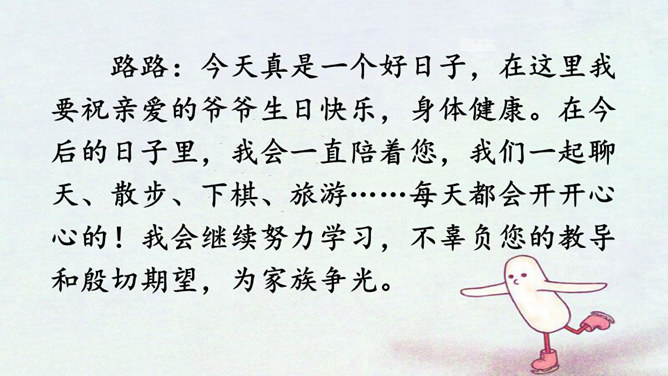 路路：今天真是一个好日子，在这里我
要祝亲爱的爷爷生日快乐，身体健康。在今
后的日子里，我会一直陪着您，我们一起聊
天、散步、下棋、旅游……每天都会开开心
心的！我会继续努力学习，不辜负您的教导
和殷切期望，为家族争光。